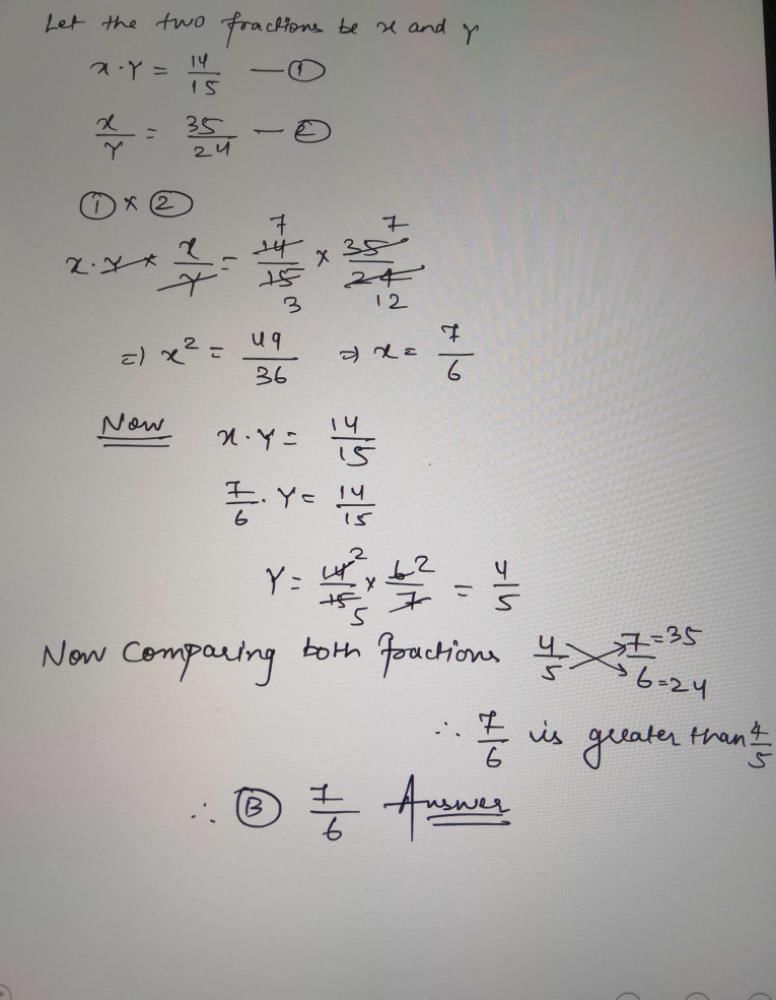 Let the two fractions be x and y
x·y = 14/15 — ①
x/y = 35/24 — ②
① × ②
x·y × x/y = 14/15 × 35/24 7 3 7 12
=) x² = 49/36 =) x = 7/6
Now x·y = 14/15
7/6 · y = 14/15
y = 14/15 × 6/7 = 4/5 2 5 2
Now Comparing both fractions 4/5 7/6 =35 =24
∴ 7/6 is greater than 4/5
∴ Ⓑ 7/6 Answer